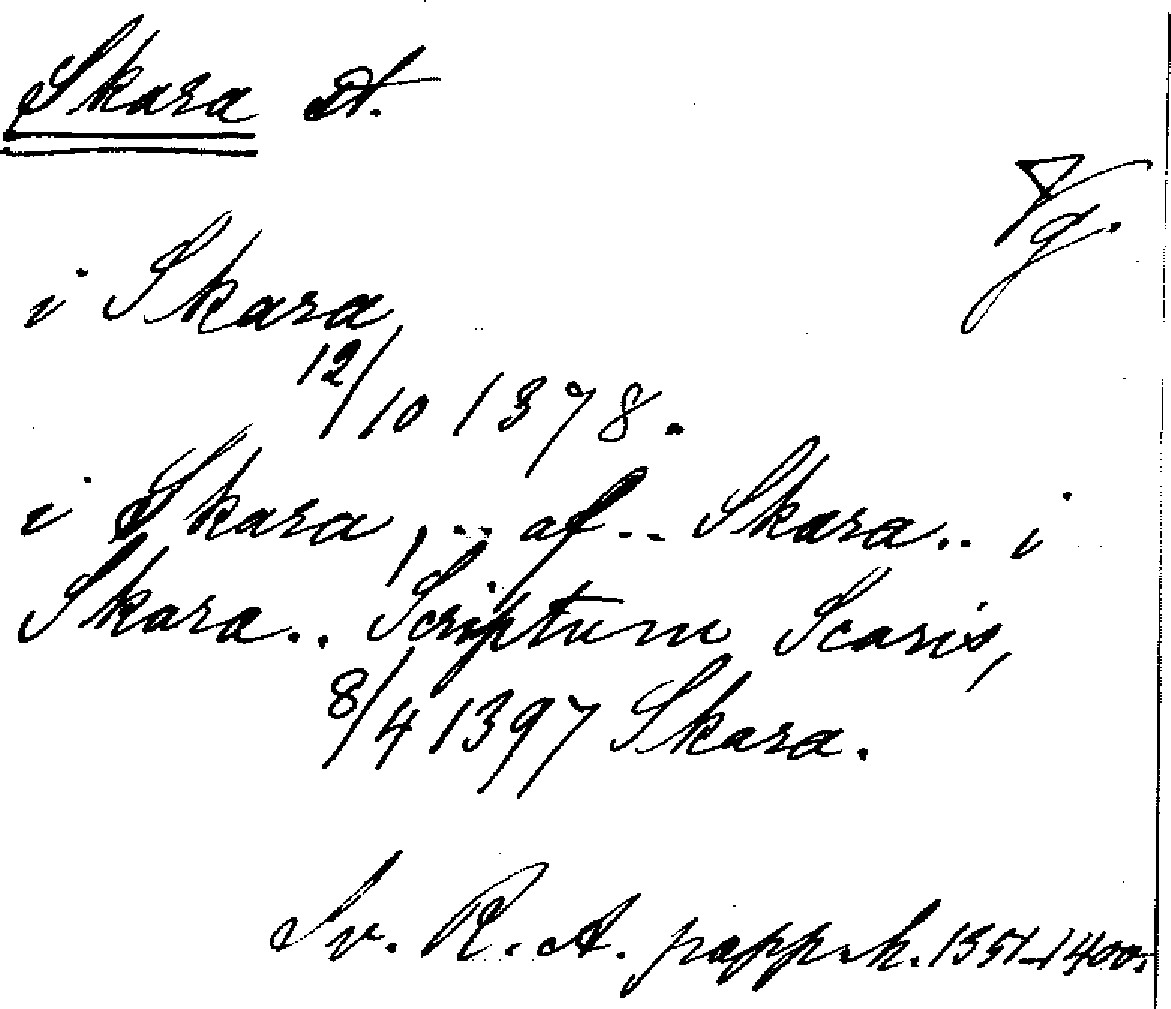 Skara st.
Vg.
i Skara
12/10 1378.
i Skara, .. af .. Skara .. i
Skara .. Scriptum Scaris,
8/4 1397 Skara.
Sv. R. A. papp. h. 1351-1400.